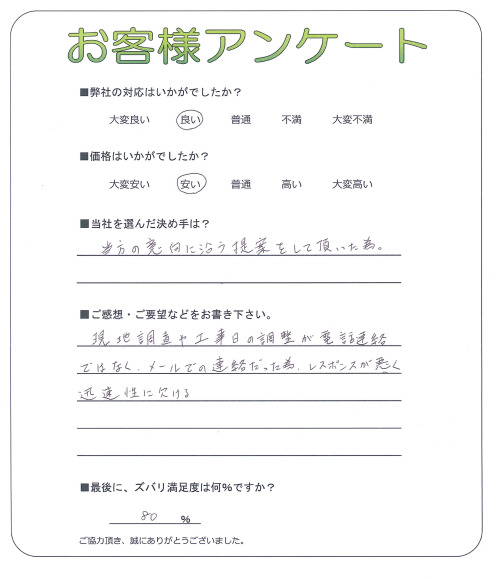 お客様アンケート
■弊社の対応はいかがでしたか？
大変良い 良い 普通 不満 大変不満
■価格はいかがでしたか？
大変安い 安い 普通 高い 大変高い
■当社を選んだ決め手は？
当方の意向に沿う提案をして頂いた為。
■ご感想・ご要望などをお書き下さい。
現地調査や工事日の調整が電話連絡
ではなく、メールでの連絡だった為、レスポンスが悪く
迅速性に欠ける
■最後に、ズバリ満足度は何%ですか？
80 %
ご協力頂き、誠にありがとうございました。